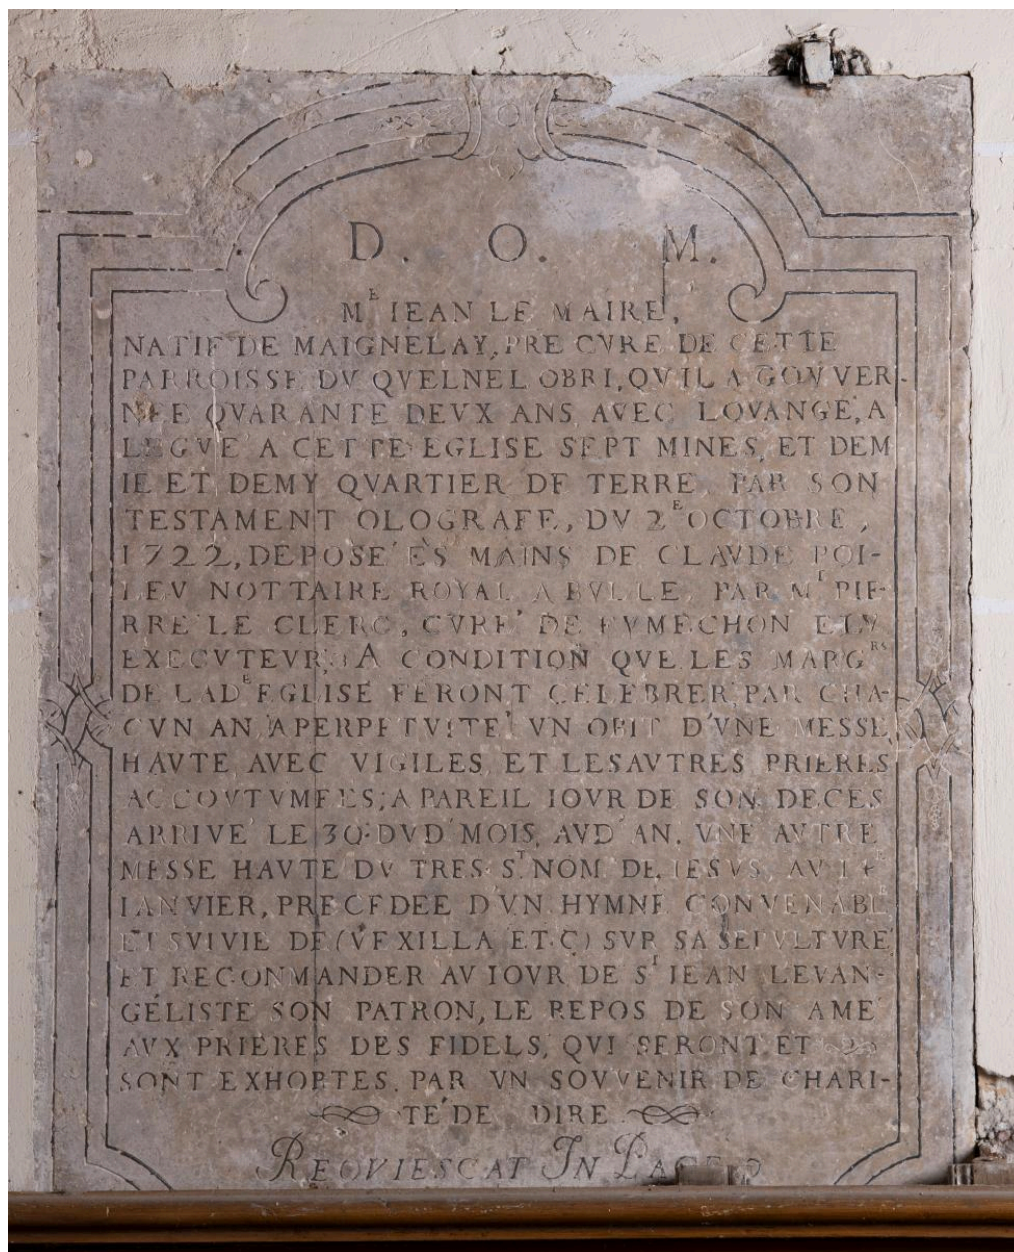 D. O. M.
Mᴱ IEAN LE MAIRE,
NATIF DE MAIGNELAY, PRE CVRE DE CETTE
PARROISSE DV QVELNEL OBRI, QV'IL A GOVVER-
NÉE QVARANTE DEVX ANS, AVEC LOVANGE, A
LEGVÉ A CETTE EGLISE SEPT MINES, ET DEM
IE ET DEMY QVARTIER DE TERRE, PAR SON
TESTAMENT OLOGRAFE, DV 2ᴱ OCTOBRE,
1722, DEPOSÉ ÉS MAINS DE CLAVDE POI-
LEV NOTTAIRE ROYAL A BVLLE, PAR Mʳ PIE-
RRE LE CLERC, CVRÉ DE FVMECHON ET
EXECVTEVR, A CONDITION QVE LES MARGᴿˢ
DE LADᴱ EGLISE FERONT CELEBRER, PAR CHA-
CVN AN A PERPETVITÉ VN OBIT D'VNE MESSE
HAVTE, AVEC VIGILES, ET LES AVTRES PRIERES
ACCOVTVMEES; A PAREIL IOVR DE SON DECES
ARRIVÉ LE 30. DVD' MOIS, AVD' AN. VNE AVTRE
MESSE HAVTE DV TRES Sᵀ NOM DE IESVS, AV
IANVIER, PRECEDEE D'VN HYMNE CONVENABLᴱ
ET SVIVIE DE (VEXILLA ET.C) SVR SA SEPVLTVRE
ET RECONMANDER AV IOVR DE Sᵀ IEAN L'EVAN-
GÉLISTE SON PATRON, LE REPOS DE SON AME
AVX PRIERES DES FIDELS, QVI SERONT ET
SONT EXHORTES, PAR VN SOVVENIR DE CHARI-
TÉ DE DIRE
REQVIESCAT IN PACE